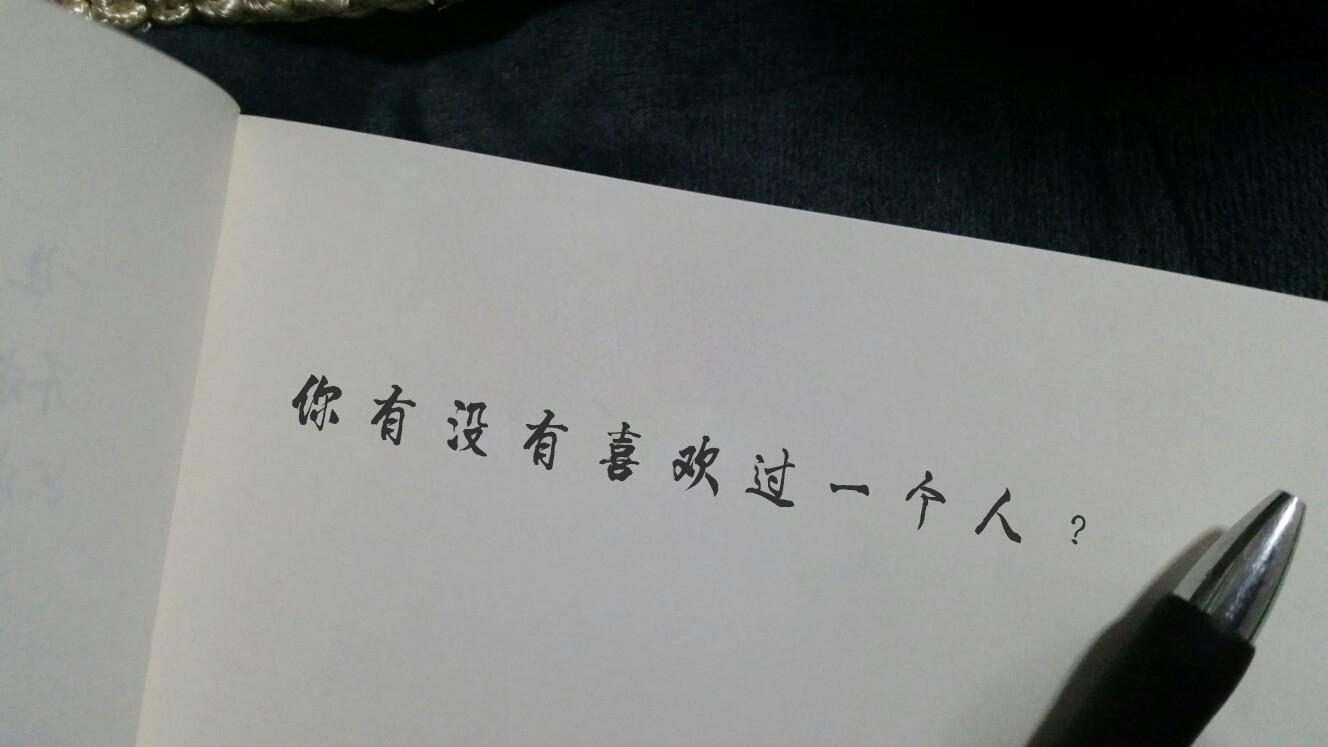 你有没有喜欢过一个人？